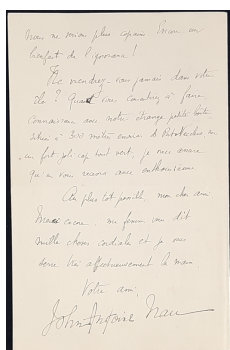 Nous ne serions plus copains. Encore un
bienfait de l'ignorance!
Ne viendrez-vous jamais dans votre
île? Quand vous consentirez à faire
connaissance avec notre étrange petite
à 300 mètres environ de
un fort joli cap tout vert, je vous assure
qu'on vous recevra avec enthousiasme
Au plus tôt possible, mon cher ami
ma femme vous dit
mille choses cordiales et je vous
serre très affectueusement la main
Votre ami
John-Antoine Nau